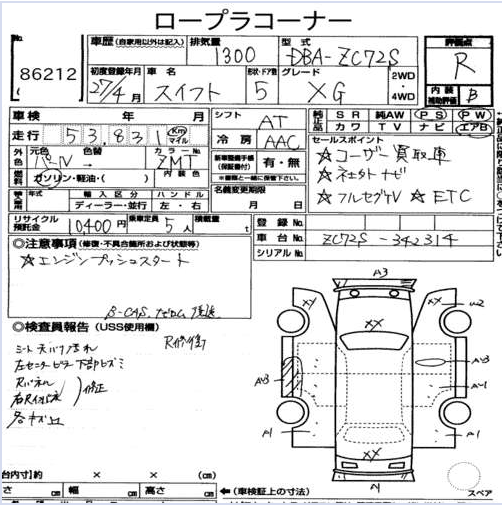 ロープラコーナー
No.
86212
車歴 (自家用以外は記入)
排気量
1300
型式
DBA-ZC72S
評価点
R
内装
補助評価
B
初度登録年月
27/4月
車名
スイフト
形状・ドア数
5
グレード
XG
2WD
・
4WD
車検 年 月
走行 53,831 Km マイル
シフト
AT
冷房
AAC
純正品
SR 純AW PS PW
カワ TV ナビ エアB
セールスポイント
☆ユーザー買取車
☆ネットナビ
☆フルセグTV ☆ETC
外色
元色
パール
色替
カラーNo.
ZMT
燃料
ガソリン・軽油・( )
内装色
新車整備手帳
(保証書付)
有・無
年式
輸入区分
ハンドル
ディーラー・並行
左・右
名義変更期限
月 日
リサイクル
預託金
10400円
乗車定員
5人
積載量
t
登録No.
車台No.
ZC72S-342314
シリアルNo.
◎注意事項(修復・不具合箇所および状態等)
☆エンジンプッシュスタート
B-CAS
◎検査員報告(USS使用欄)
シート天バリ汚れ
左センターピラー下部ヒズミ
Rパネル
修正
各キズ凹
A3
XY
XX
U2
A3
A3
A4
A1
A1
XX
台内寸)約 × × (cm)
さ cm
幅 cm
高さ cm
(車検証上の寸法)
スペア